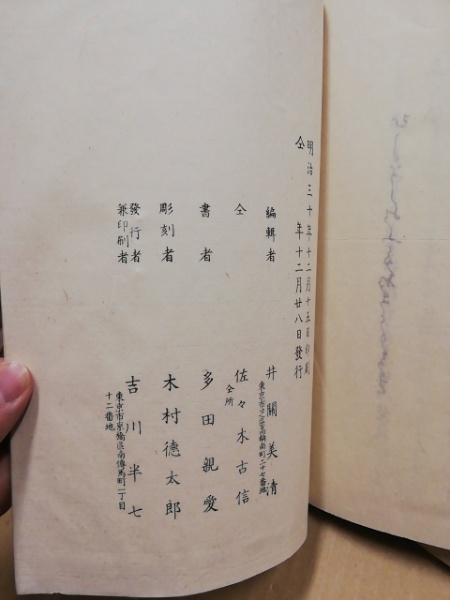 明治三十年十二月十五日印刷
仝 年十二月廿八日發行
編輯者 井關美清
仝 佐々木古信
仝所
書者 多田親愛
彫刻者 木村德太郎
發行者兼印刷者 吉川半七
東京市京橋區南傳馬町一丁目
十二番地